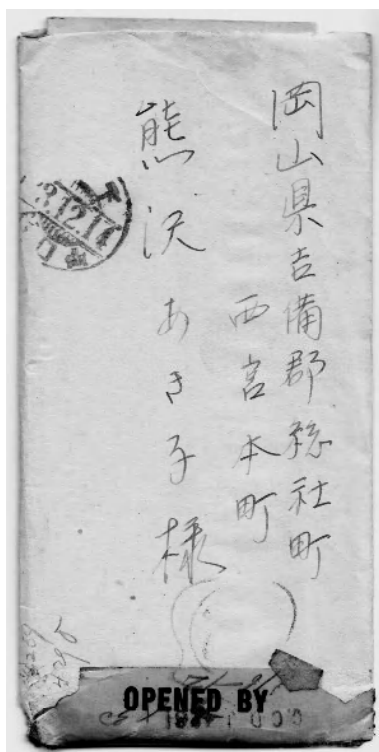 岡山県吉備郡総社町
西宮本町
熊沢あき子様
12.14
OPENED BY